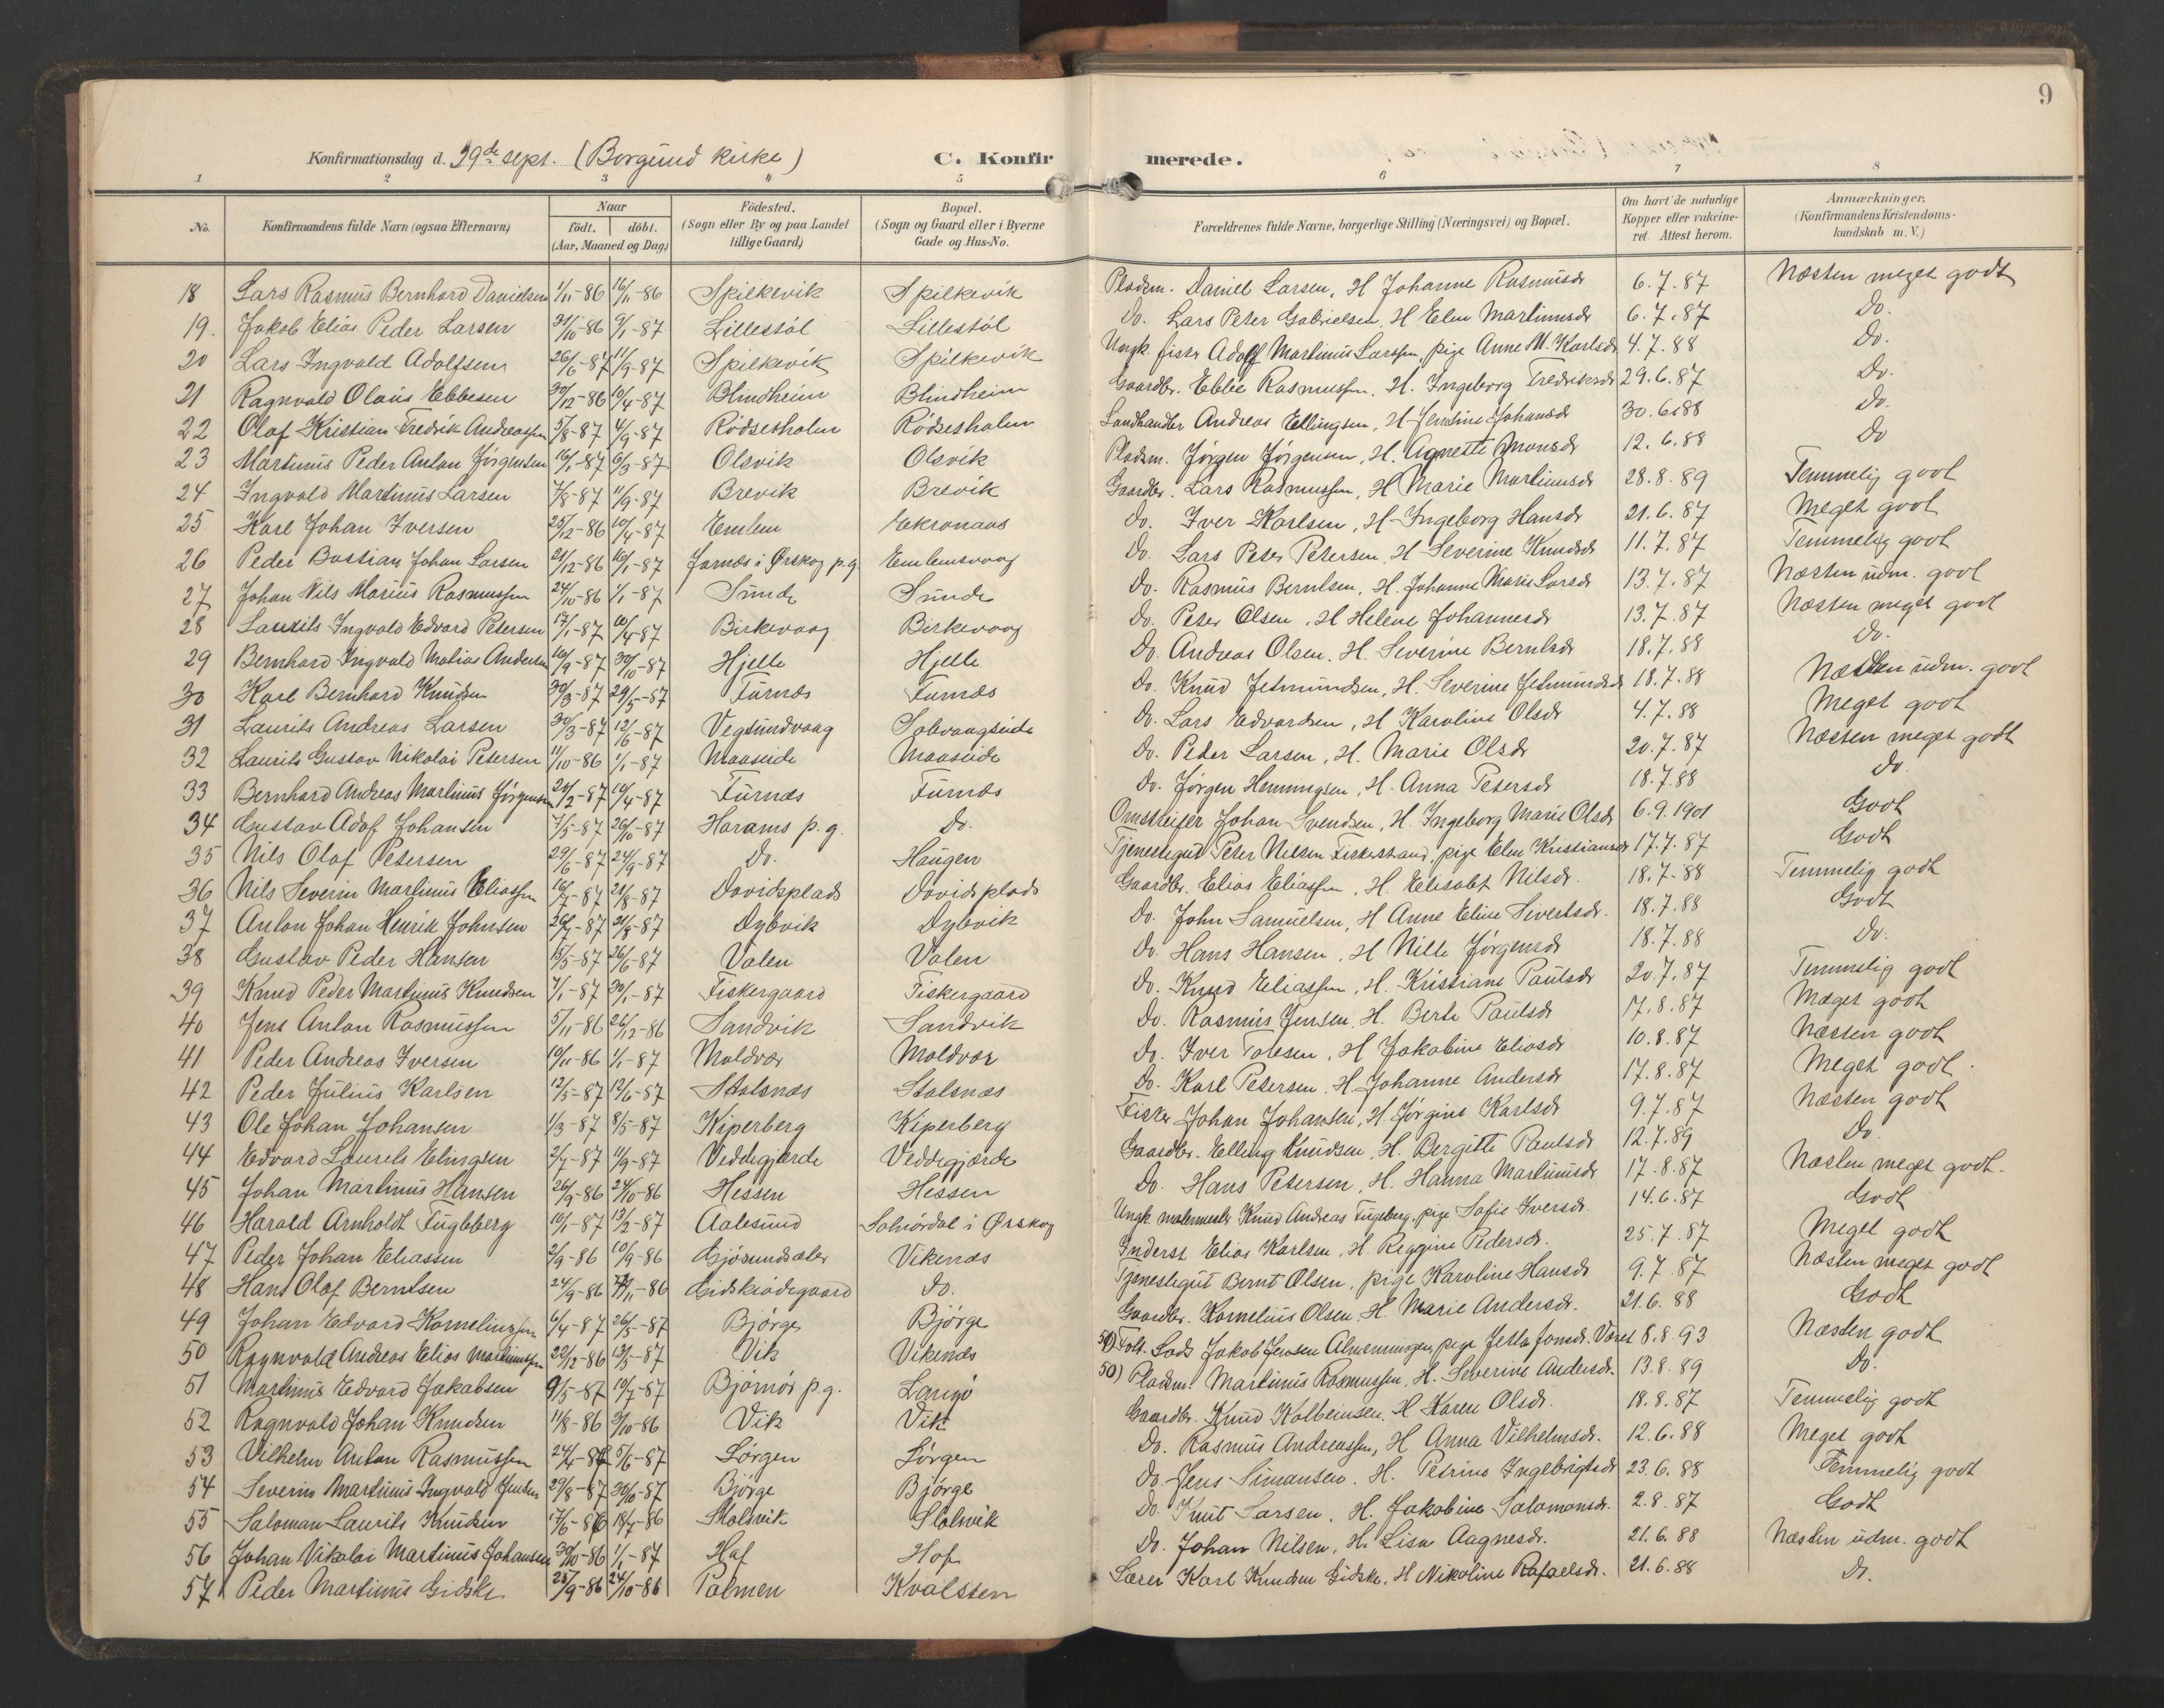 9
Konfirmationsdag d. 29de sept. (Borgund kirke) C. Konfirmerede.
1 2 3 4 5 6 7 8
No. Konfirmandens fulde Navn (ogsaa Efternavn) Naar födt. döbt. (Aar, Maaned og Dag) Födested. (Sogn eller By og paa Landet tillige Gaard) Bopæl. (Sogn og Gaard eller i Byerne Gade og Hus-No. Forældrenes fulde Navne, borgerlige Stilling (Næringsvei) og Bopæl. Om havt de naturlige Kopper eller vakcineret. Attest herom. Anmærkninger. (Konfirmandens Kristendomskundskab m. V.)
18 Lars Rasmus Bernhard Danielsen 1/11-86 16/11-86 Spilkevik Spilkevik Pladsm. Daniel Larsen, H Johanne Rasmusdr 6.7.87 Næsten meget godt
19. Jakob Elias Peder Larsen 31/10-86 9/1-87 Lillestöl Lillestöl Do. Lars Peter Gabrielsen, H Elen Martinusdr 6.7.87 Do.
20 Lars Ingvald Adolfsen 26/6-87 11/9-87 Spilkevik Spilkevik Ungk. fisker Adolf Martinus Larssen, pige Anne M. Karlsdr 4.7.88 Do.
21 Ragnvald Olaus Ebbesen 30/12-86 10/4-87 Blindheim Blindheim Gaardbr. Ebbe Rasmussen, H. Ingeborg Fredriksdr 29.6.87 Do.
22 Olaf Kristian Fredrik Andreassen 5/8-87 4/9-87 Rödsetholen Rödsetholen Landhandler Andreas Ellingsen, H Jensine Johansdr 30.6.88 Do.
23 Martinus Peder Anton Jörgensen 16/1-87 6/3-87 Olsvik Olsvik Pladsm. Jørgen Jörgensen, H. Agnette Monsdr 12.6.88 Do
24 Ingvald Martinus Larsen 7/8-87 11/9-87 Brevik Brevik Gaardbr. Lars Rasmussen, H Marie Martinusdr 28.8.89 Temmelig godt
25 Karl Johan Iversen 25/12-86 10/4-87 Emlem Ekronaas Do. Iver Karlsen, H Ingeborg Hansdr 21.6.87 Meget godt
26 Peder Bastian Johan Larsen 21/12-86 16/1-87 Jarnæs i Ørskog p.g. Emlemsvaag Do. Lars Peter Petersen, H Severine Knudsdr 11.7.87 Temmelig godt
27 Johan Nils Marius Rasmussen 24/10-86 1/1-87 Sunde Sunde Do. Rasmus Berntsen, H. Johanne Marie Larsdr 13.7.87 Næsten udm. godt
28 Laurits Ingvald Edvard Petersen 17/1-87 10/4-87 Birkevaag Birkevaag Do. Peter Olsen, H Helene Johannesdr 13.7.87 Næsten meget godt
29 Bernhard Ingvald Matias Andersen 16/9-87 30/10-87 Hjelle Hjelle Do. Andreas Olsen, H. Severine Berntsdr 18.7.88 Do.
30 Karl Bernhard Knudsen 30/3-87 29/5-87 Furnæs Furnæs Do. Knud Jetmundsen, H. Severine Jetmundsdr 18.7.88 Næsten udm. godt
31 Laurits Andreas Larsen 30/3-87 12/6-87 Vegsundvaag Solevaagseide Do. Lars Edvardsen, H Karoline Olsdr 4.7.88 Meget godt
32 Laurits Gustav Nikolai Petersen 11/10-86 1/1-87 Maaseide Maaseide Do. Peder Larsen, H. Marie Olsdr 20.7.87 Næsten meget godt
33 Bernhard Andreas Martinus Jörgensen 21/2-87 10/4-87 Furnæs Furnæs Do. Jørgen Hemmingsen, H. Anna Petersdr 18.7.88 Do.
34 Gustav Adof Johansen 7/5-87 26/10-87 Harams p.g. Do. Omstreifer Johan Svendsen, H. Ingeborg Marie Olsdr 6.9.1901 Godt
35 Nils Olaf Petersen 29/6-87 24/9-87 Do. Haugen Tjenestegut Peter Nilsen Fiskerstrand, pige Elen Kristiansdr 17.7.87 Godt
36 Nils Severin Martinus Eliassen 16/7-87 21/8-87 Davidsplads Davidsplads Gaardbr. Elias Eliassen, H. Elisabt Nilsdr. 18.7.88 Temmelig godt
37 Anton Johan Henrik Johnsen 26/7-87 21/8-87 Dybvik Dybvik Do. John Samuelsen, H Anne Eline Sivertsdr. 18.7.88 Godt
38 Gustav Peder Hansen 15/5-87 26/6-87 Valen Valen Do. Hans Hansen, H Nille Jörgensdr 18.7.88 Do.
39 Knud Peder Martinus Knudsen 7/1-87 30/1-87 Fiskergaard Fiskergaard Do. Knud Eliassen, H. Kristiane Paulsdr 20.7.87 Temmelig godt
40 Jens Anton Rasmussen 5/11-86 26/12-86 Sandvik Sandvik Do. Rasmus Jensen, H. Berte Paulsdr 17.8.87 Meget godt
41 Peder Andreas Iversen 10/11-86 1/1-87 Moldvær Moldvær Do. Iver Tolesen, H Jakobine Eliasdr 10.8.87 Næsten godt
42 Peder Julius Karlsen 12/5-87 12/6-87 Stolsnæs Stolsnæs Do. Karl Petersen, H. Johanne Andersdr 17.8.87 Meget godt.
43 Ole Johan Johansen 1/3-87 8/5-87 Kiperberg Kiperberg Fisker Johan Johansen, H. Jørgine Karlsdr 9.7.87 Næsten godt
44 Edvard Laurits Elingsen 2/7-87 11/9-87 Veddegjærde Veddegjærde Gaardbr. Elling Knudsen, H. Bergitte Paulsdr 12.7.89 Do
45 Johan Martinus Hansen 26/9-86 24/10-86 Hessen Hessen Do. Hans Petersen, H. Hanna Martinusdr 17.8.87 Næsten meget godt.
46 Harald Arnholdt Fugleberg 10/1-87 13/2-87 Aalesund Solnördal i Ørskog Ungk. malermester Knud Andreas Fugeberg, pige Sofie Iversdr. 14.6.87 Godt
47 Peder Johan Eliassen 2/9-86 10/9-86 Gjösundsæter Vikenæs Inderst Elias Karlsen, H. Reggine Pedersdr. 25.7.87 Meget godt
48 Hans Olaf Berntsen 24/9-86 /11-86 Gidskeödegaard Do. Tjenestegut Bernt Olsen, pige Karoline Hansdr 9.7.87 Næsten meget godt
49 Johan Edvard Kornelinssen 6/4-87 26/5-87 Bjørge Bjørge Gaardbr. Kornelius Olsen, H. Marie Andersdr. 21.6.88 Godt
50 Ragnvald Andreas Elias Martinussen 22/12-86 13/5-87 Vik Vikenæs 51) Lods Jakob Jensen Almenningen, pige Jetta Jonsdr. 8.8.93 Næsten godt
51 Martinus Edvard Jakabsen 9/5-87 10/7-87 Bjørnör p.g. Langö 50) Pladsm. Martinus Rasmussen, H. Severine Andersdr. 13.8.89 Do.
52 Ragnvald Johan Knudsen 11/8-86 3/10-86 Vik Vik Gaardbr. Knud Kolbeinsen, H Karen Olsdr. 18.8.87 Temmelig godt
53 Vilhelm Anton Rasmussen 24/4-87 5/6-87 Sörgen Sörgen Do. Rasmus Andreassen, H Anna Vilhelmsdr. 12.6.88 Meget godt
54 Severin Martinus Ingvald Jensen 29/8-87 30/10-87 Bjørge Bjørge Do. Jens Simansen. H. Petrine Ingebrigtsdr 23.6.88 Temmelig godt
55 Saloman Laurits Knudsen 17/6-86 18/7-86 Stolsvik Stolsvik Do. Knut Larsen, H. Jakobine Salomonsdr. 2.8.87 Godt
56 Johan Nikolai Martinus Johansen 30/10-86 1/1-87 Hof Hof Do. Johan Nilsen, H. Lisa Aagnesdr. 21.6.88 Næsten udm. godt
57 Peder Martinus Gidske 25/9-86 24/10-86 Tolmen Kvalsten Lærer Karl Knudsen Gidske, H Nikoline Rafaelsdr. 21.6.88 Do.